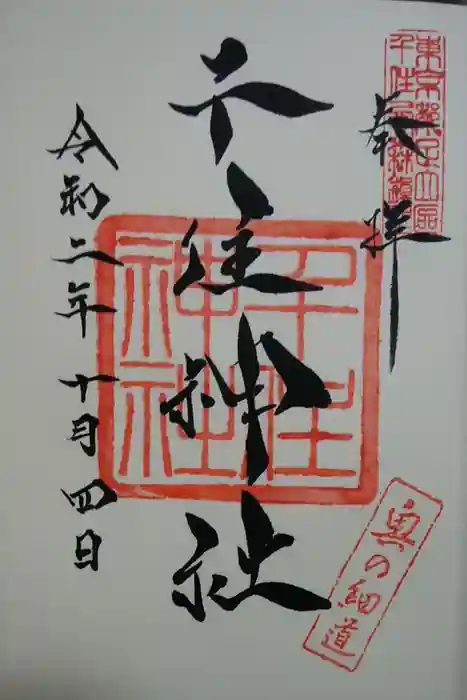 東京都足立区
千住宮元町鎮座
奉拝
千住神社
千住
神社
令和二年十月四日
奥の細道